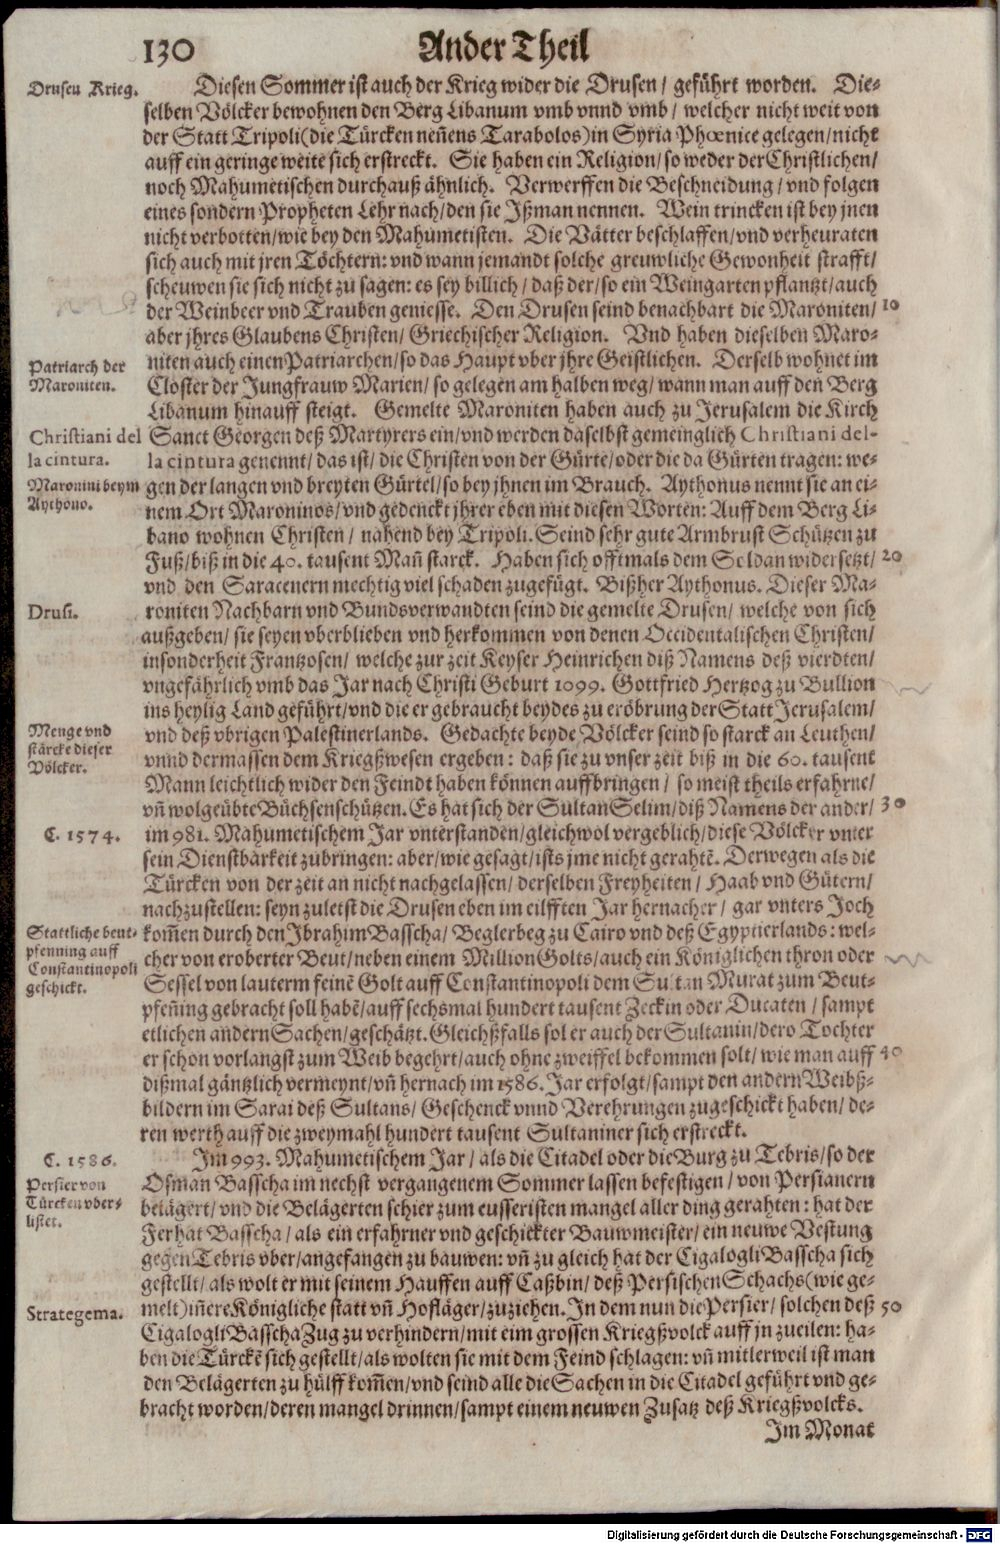 130 Ander Theil
Drusen Krieg.
Diesen Sommer ist auch der Krieg wider die Drusen / geführt worden. Die-
selben Völcker bewohnen den Berg Libanum vmb vnnd vmb / welcher nicht weit von
der Statt Tripoli (die Türcken neñens Tarabolos) in Syria Phœnice gelegen / nicht
auff ein geringe weite sich erstreckt. Sie haben ein Religion / so weder der Christlichen /
noch Mahumetischen durchauß ähnlich. Verwerffen die Beschneidung / vnd folgen
eines sondern Propheten Lehr nach / den sie Ißman nennen. Wein trincken ist bey jnen
nicht verbotten / wie bey den Mahumetisten. Die Vätter beschlaffen / vnd verheuraten
sich auch mit jren Töchtern: vnd wann jemandt solche greuwliche Gewonheit strafft /
scheuwen sie sich nicht zu sagen: es sey billich / daß der / so ein Weingarten pflantzt / auch
der Weinbeer vnd Trauben geniesse. Den Drusen seind benachbart die Maroniten / 10
aber jhres Glaubens Christen / Griechischer Religion. Vnd haben dieselben Maro-
Patriarch der
Maroniten.
niten auch einen Patriarchen / so das Haupt vber jhre Geistlichen. Derselb wohnet im
Closter der Jungfrauw Marien / so gelegen am halben weg / wann man auff den Berg
Libanum hinauff steigt. Gemelte Maroniten haben auch zu Jerusalem die Kirch
Christiani del
la cintura.
Sanct Georgen deß Martyrers ein / vnd werden daselbst gemeinglich Christiani del-
la cintura genennt / das ist / die Christen von der Gürte / oder die da Gürten tragen: we-
Maronini beym
Aythono.
gen der langen vnd breyten Gürtel / so bey jhnen im Brauch. Aythonus nennt sie an ei-
nem Ort Maroninos / vnd gedenckt jhrer eben mit diesen Worten: Auff dem Berg Li-
bano wohnen Christen / nahend bey Tripoli. Seind sehr gute Armbrust Schützen zu
Fuß / biß in die 40. tausent Mañ starck. Haben sich offtmals dem Soldan widersetzt / 20
vnd den Saracenern mechtig viel schaden zugefügt. Bißher Aythonus. Dieser Ma-
Drusi.
roniten Nachbarn vnd Bundsverwandten seind die gemelte Drusen / welche von sich
außgeben / sie seyen vberblieben vnd herkommen von denen Occidentalischen Christen /
insonderheit Frantzosen / welche zur zeit Keyser Heinrichen diß Namens deß vierdten /
vngefährlich vmb das Jar nach Christi Geburt 1099. Gottfried Hertzog zu Bullion
ins heylig Land geführt / vnd die er gebraucht beydes zu eröbrung der Statt Jerusalem /
Menge vnd
stärcke dieser
Völcker.
vnd deß vbrigen Palestinerlands. Gedachte beyde Völcker seind so starck an Leuthen /
vnnd dermassen dem Kriegßwesen ergeben: daß sie zu vnser zeit biß in die 60. tausent
Mann leichtlich wider den Feindt haben können auffbringen / so meist theils erfahrne /
vñ wolgeübte Büchsenschützen. Es hat sich der Sultan Selim / diß Namens der ander / 30
C. 1574.
im 981. Mahumetischem Jar vnterstanden / gleichwol vergeblich / diese Völcker vnter
sein Dienstbarkeit zubringen: aber / wie gesagt / ists jme nicht gerahtē. Derwegen als die
Türcken von der zeit an nicht nachgelassen / derselben Freyheiten / Haab vnd Gütern /
nachzustellen: seyn zuletst die Drusen eben im eilfften Jar hernacher / gar vnters Joch
Stattliche beut-
pfenning auff
Constantinopoli
geschickt.
kom̃en durch den Ibrahim Basscha / Beglerbeg zu Cairo vnd deß Egyptierlands: wel-
cher von eroberter Beut / neben einem Million Golts / auch ein Königlichen thron oder
Sessel von lauterm feinē Golt auff Constantinopoli dem Sultan Murat zum Beut-
pfeñing gebracht soll habē / auff sechsmal hundert tausent Zeckin oder Ducaten / sampt
etlichen andern Sachen / geschätzt. Gleichßfalls sol er auch der Sultanin / dero Tochter
er schon vorlangst zum Weib begehrt / auch ohne zweiffel bekommen solt / wie man auff 40
dißmal gäntzlich vermeynt / vñ hernach im 1586. Jar erfolgt / sampt den andern Weibß-
bildern im Sarai deß Sultans / Geschenck vnnd Verehrungen zugeschickt haben / de-
ren werth auff die zweymahl hundert tausent Sultaniner sich erstreckt.
C. 1586.
Im 993. Mahumetischem Jar / als die Citadel oder die Burg zu Tebris / so der
Persier von
Türcken vber-
listet.
Osman Basscha im nechst vergangenem Sommer lassen befestigen / von Persianern
belägert / vnd die Belägerten schier zum eusseristen mangel aller ding gerahten: hat der
Ferhat Basscha / als ein erfahrner vnd geschickter Bauwmeister / ein neuwe Vestung
gegen Tebris vber / angefangen zu bauwen: vñ zu gleich hat der Cigalogli Basscha sich
gestellt / als wolt er mit seinem Hauffen auff Caßbin / deß Persischen Schachs (wie ge-
Strategema.
melt) iñere Königliche statt vñ Hofläger / zuziehen. In dem nun die Persier / solchen deß 50
Cigalogli Basscha Zug zu verhindern / mit eim grossen Kriegßvolck auff jn zueilen: ha-
ben die Türckē sich gestellt / als wolten sie mit dem Feind schlagen: vñ mitlerweil ist man
den Belägerten zu hülff kom̃en / vnd seind alle die Sachen in die Citadel geführt vnd ge-
bracht worden / deren mangel drinnen / sampt einem neuwen Zusatz deß Kriegßvolcks.
Im Monat
Digitalisierung gefördert durch die Deutsche Forschungsgemeinschaft - DFG